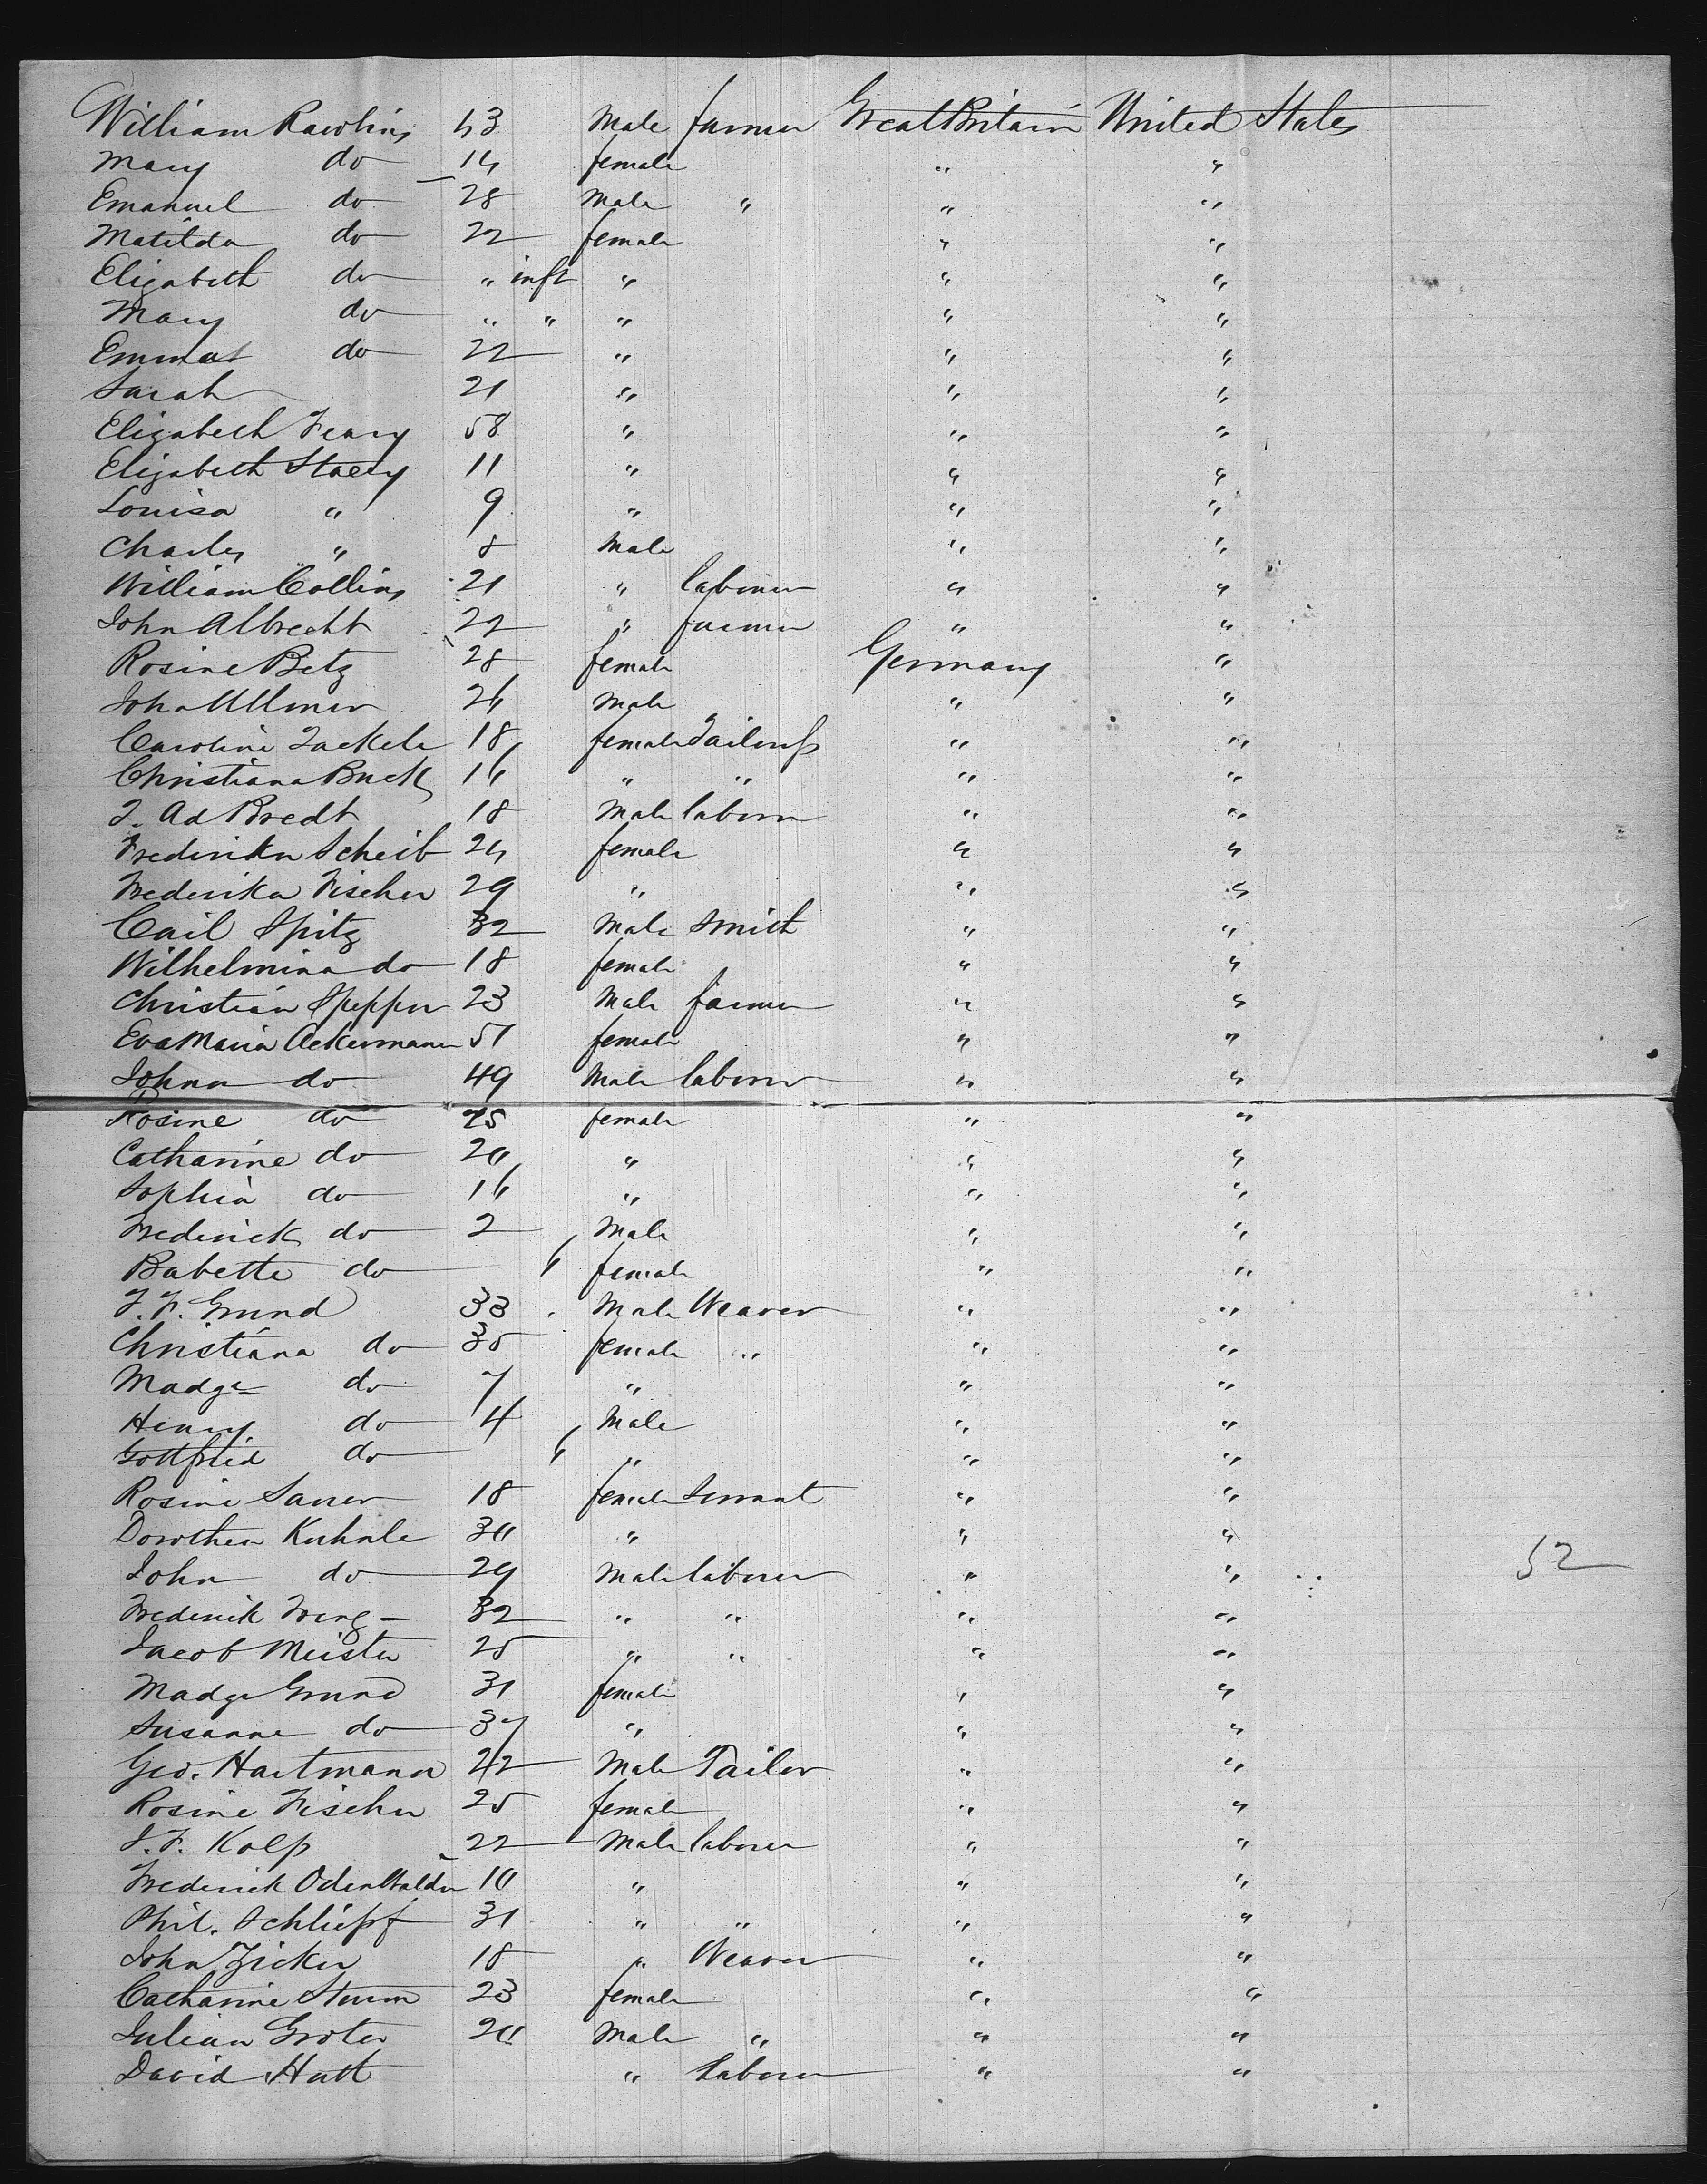 William Rawlins 53 Male farmer Great Britain United States
Mary do 14 female " "
Emanuel do 28 Male " " "
Matilda do 22 female " "
Elizabeth do " inft " " "
Mary do " " " " "
Emma do 22 " " "
Sarah 21 " " "
Elizabeth 58 " " "
Elizabeth Stacey 11 " " "
Louisa " 9 " " "
Charles " 8 Male " "
William Collins 21 " laborer " "
John Albrecht 22 " farmer " "
Rosine Betz 28 female Germany "
John Ullmer 26 Male " "
Caroline 18 female Tailoress " "
Christiana Buck 16 " " " "
J. Ad Bredt 18 Male laborer " "
Frederika Scheib 24 female " "
Frederika Fischer 29 " " "
Carl Spitz 32 Male Smith " "
Wilhelmina do 18 female " "
Christian 23 Male farmer " "
Eva Maria Ackermann 51 female " "
Johann do 49 Male laborer " "
Rosine do 25 female " "
Catharine do 20 " " "
Sophia do 16 " " "
Frederick do 2 Male " "
Babette do " female " "
J. F. Grund 33 Male Weaver " "
Christiana do 35 female " " "
Madge do 7 " " "
Henry do 4 Male " "
Gottfried do " " " "
Rosine Sauer 18 female Servant " "
Dorothea Kuhnle 30 " " "
John do 29 Male laborer " "
Frederick 32 " " " "
Jacob Meister 25 " " " "
Madge Grund 31 female " "
Susanne do 37 " " "
Geo. Hartmann 22 Male Tailor " "
Rosine Fischer 25 female " "
J. F. Kolp 22 Male laborer " "
Frederick Odenwalder 10 " " "
Phil. Schliepf 31 " " " "
John Zicker 18 " Weaver " "
Catharine Sturm 23 female " "
Julian Groter 20 Male " " "
David Hutt " Laborer " "
52